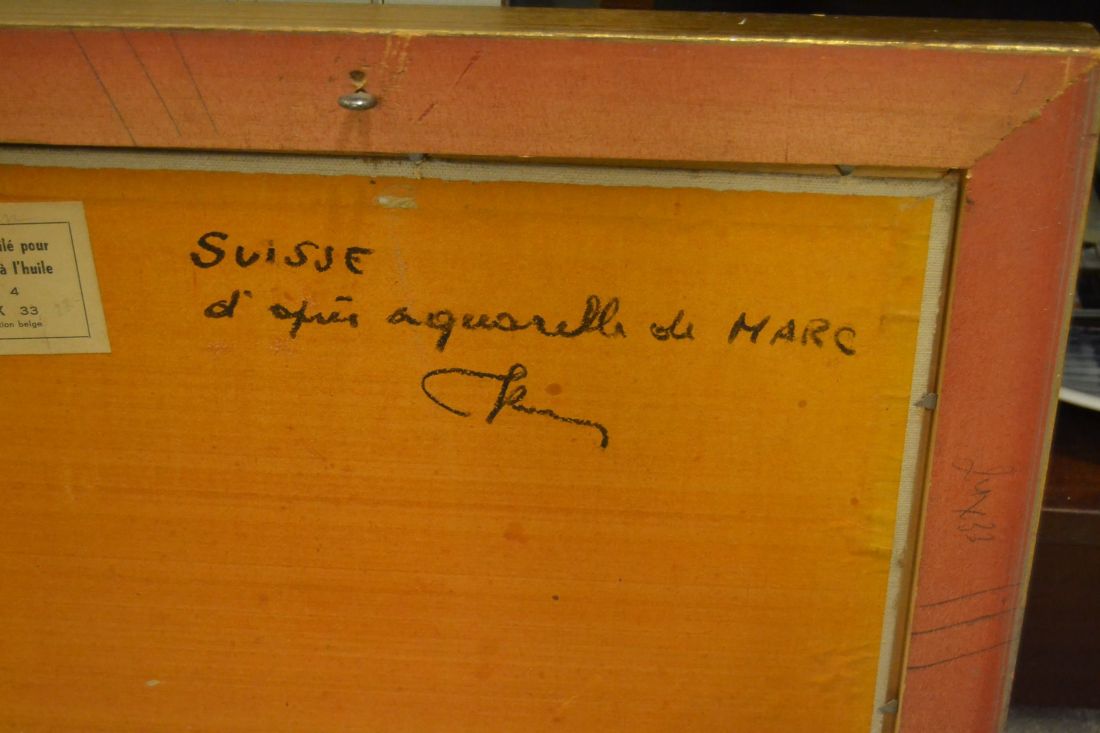 ilé pour
à l'huile
4
X 33
tion belge
SUISSE
d'après aquarelle de MARC
24X33